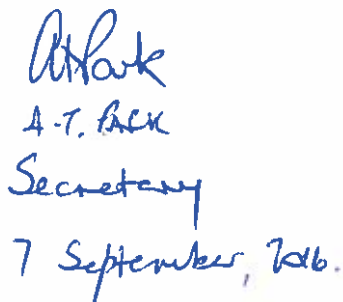 A T Park
A.T. PARK
Secretary
7 September, 2016.